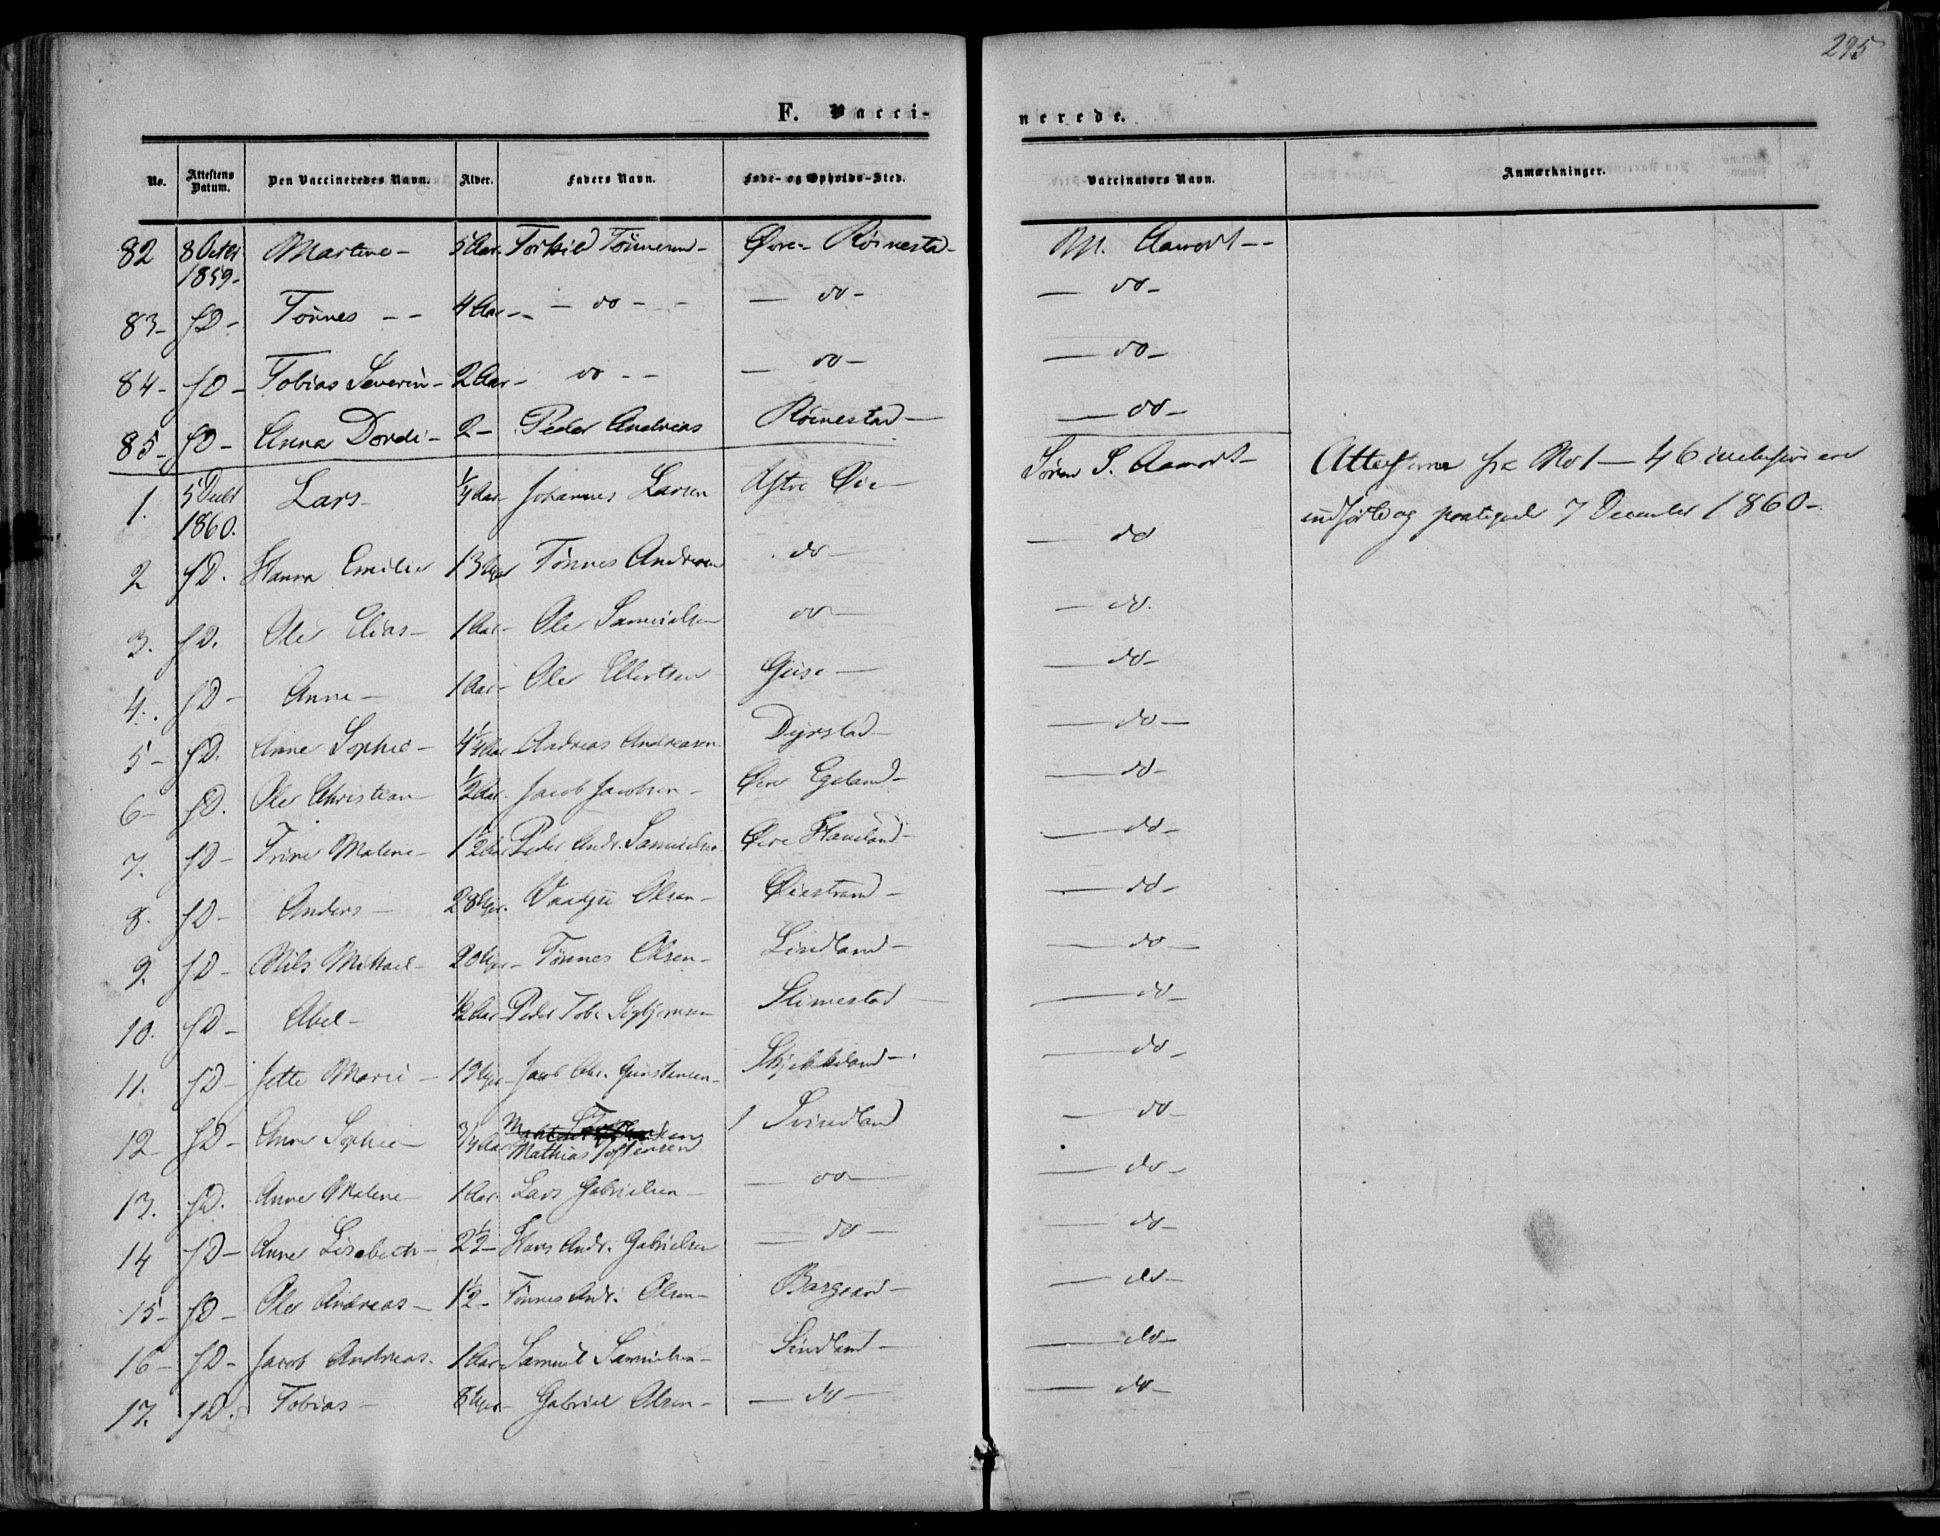 295
F. Vacci-
nerede.
No. Attestens Datum. Den Vaccineredes Navn. Alder. Faders Navn. Føde- og Opholds-Sted. Vaccinators Navn. Anmærkninger.
82 8 Octbr 1859- Martine- 5 Aar. Torkild Tønnesen- Øvre- Røinestad- Aamodt--
83- sD- Tønnes -- 4 Aar-- -do-- -do- -do-
84- sD- Tobias Severin- 2 Aar- do-- -do- -do-
85- sD- Anna Dordi- 2- Peder Andreas Røinestad- -do-
1. 5 Decbr 1860. Lars- 1/4 Aar- Johannes Larsen Østre Øie- Søren S. Aamodt- Attesterne fra No 1-46 inclusive ere
indførte og 7 December 1860-
2 sD. Hanna Emilie 13 Uger Tønnes Andersen do- -do
3. sD. Ole Elias- 1 Aar- Ole Samuelsen do- -do.
4. sD- Anne- 1 Aar- Ole Ellertsen - -do-
5- sD. Anne Sophie- 4 1/4 Aar Andreas Andreasen Dyrstad- -do-
6- sD. Ole Christian- 1/2 Aar. Jacob Jacobsen- Øvre Egeland- -do-
7. sD- Trine Malene- 1 1/2 Aar Peder Andr. Samuelsen Øvre - -do-
8. sD- Anders- 28 Uger. Olsen- Øiestrand- -do-
9. sD- Nils Mikael- 20 Uger- Tønnes Olsen- Lindland- -do-
10. sD- Abel- 1/2 Aar- Peder Tob. Sigbjørnsen Slimestad- -do-
11. sD- Jette Marie- 19 Uger- Jacob Chr. - Skjekkeland- -do-
12 sD- Anne Sophie- 3/4 Aar Mathias Tostensen Svindland -do-
13. sD. Anne Malene- 1 Aar. Lars Gabrielsen- -do- -do-
14 sD- Anne Lisebeth- 2 1/2- Hans Andr. Gabrielsen -do- -do-
15- sD- Ole Andreas- 1 1/2- Tønnes Andr. Olsen- Bargaard- -do-
16- sD- Jacob Andreas. 1 Aar Samuel Samuelsen- Lindland- -do-
17. sD. Tobias- 8 Uger- Gabriel Olsen- -do- -do-